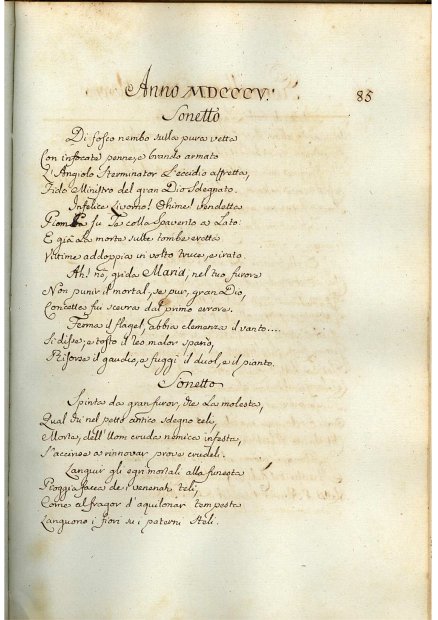 Anno MDCCCV.
85
Sonetto
Di fosco nembo sulla pura vetta
Con infocate penne, e brando armato
L'Angiolo Sterminator l'eccidio affretta,
Fido Ministro del gran Dio sdegnato.
Infelice Livorno! Ohime! vendetta
fu Te colla Spavento a Lato:
E già La morte sulle tombe eretta
Vittime addoppia in volto truce, e irato.
Ah! nò, grida Maria, nel tuo furore
Non punir il mortal, se pur, gran Dio,
Concetta fui scevra dal primo errore.
Ferma il flagel, abbia clemenza il vanto....
Si disse; e tosto il reo malor sparìo,
Risorse il gaudio, e fuggì il duol, e il pianto.
Sonetto
Spinta da gran furor, che La molesta,
Qual in nel petto antico sdegno celi,
Morte, dell'Uom cruda nemica infesta,
S'accinse a rinnovar prove crudeli.
Languir gli egri mortali alla funesta
Pioggia facea de' venenati teli,
Come al fragor d'aquilonar tempesta
Languono i fiori su i paterni steli.